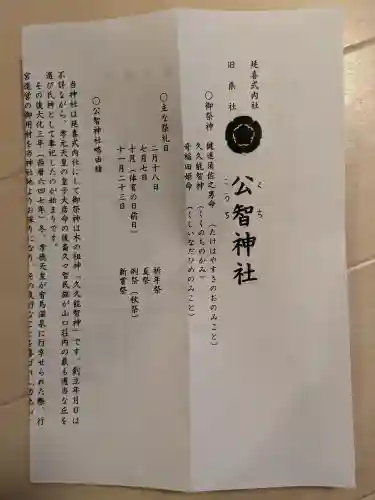 延喜式内社
旧県社
公智神社
くち
こうち
○御祭神
健速須佐之男命(たけはやすさのおのみこと)
久久能智神(くくのちのかみ)
奇稲田姫命(くしいなだひめのみこと)
○主な祭礼日
二月十八日 祈年祭
七月七日 夏祭
十月(体育の日前日) 例祭(秋祭)
十一月二十三日 新嘗祭
○公智神社略由緒
当神社は延喜式内社にして御祭神は木の祖神「久久能智神」です。創立年月日は
不詳ながら、孝元天皇の皇子大彦命の後裔久々智氏族が山口荘内の最も適当な丘を
選び氏神として奉祀したのが始まりです。
その後大化三年(西暦六四七年)冬、孝徳天皇が有馬温泉に行幸せられた際、行
宮造営の御用材を当社地よりお採りになり、その良材なることを